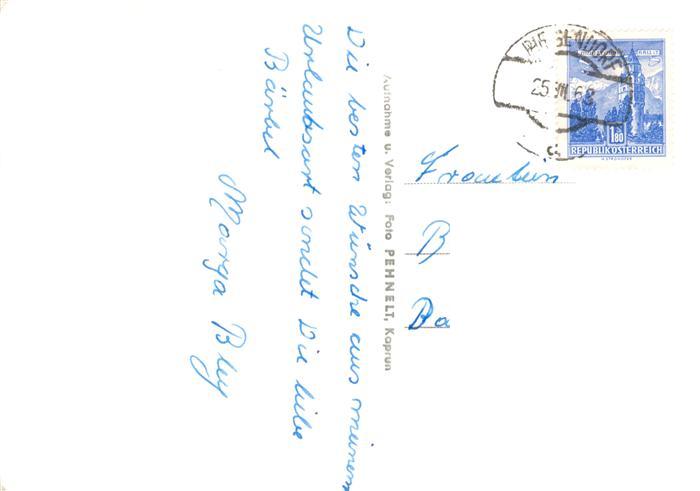 Die besten Wünsche aus meinem
Urlaubsort sendet Dir liebe
Bärbel
Marga Bley
Aufnahme u. Verlag: Foto PEHNELT, Kaprun
Fräulein
B
Ba
PIESENDORF
25. VIII. 68
1.80
REPUBLIK ÖSTERREICH